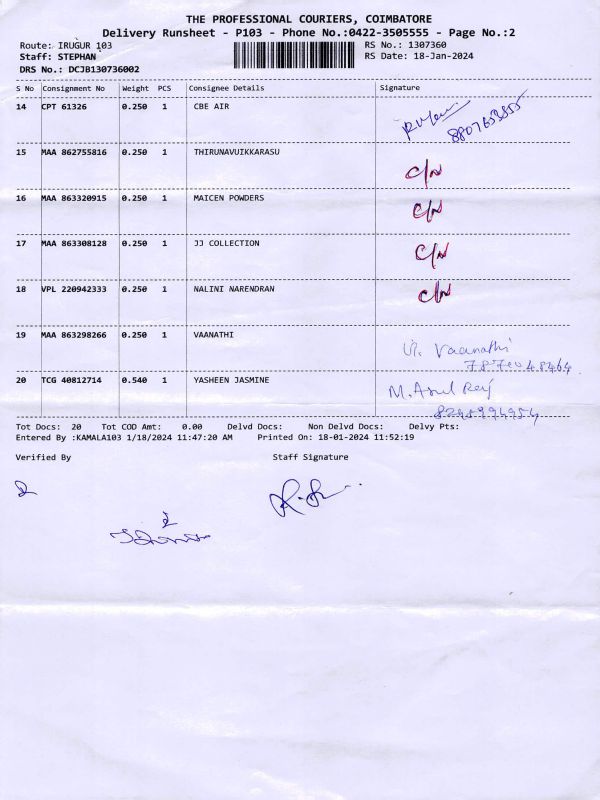 THE PROFESSIONAL COURIERS, COIMBATORE
Delivery Runsheet - P103 - Phone No.:0422-3505555 - Page No.:2
Route: IRUGUR 103
RS No.: 1307360
Staff: STEPHAN
RS Date: 18-Jan-2024
DRS No.: DCJB130736002
S No Consignment No Weight PCS Consignee Details Signature
14 CPT 61326 0.250 1 CBE AIR
15 MAA 862755816 0.250 1 THIRUNAVUIKKARASU C/N
16 MAA 863320915 0.250 1 MAICEN POWDERS C/N
17 MAA 863308128 0.250 1 JJ COLLECTION C/N
18 VPL 220942333 0.250 1 NALINI NARENDRAN C/N
19 MAA 863298266 0.250 1 VAANATHI Vaanathi
20 TCG 40812714 0.540 1 YASHEEN JASMINE M. Arul Raj
Tot Docs: 20 Tot COD Amt: 0.00 Delvd Docs: Non Delvd Docs: Delvy Pts:
Entered By :KAMALA103 1/18/2024 11:47:20 AM Printed On: 18-01-2024 11:52:19
Verified By Staff Signature